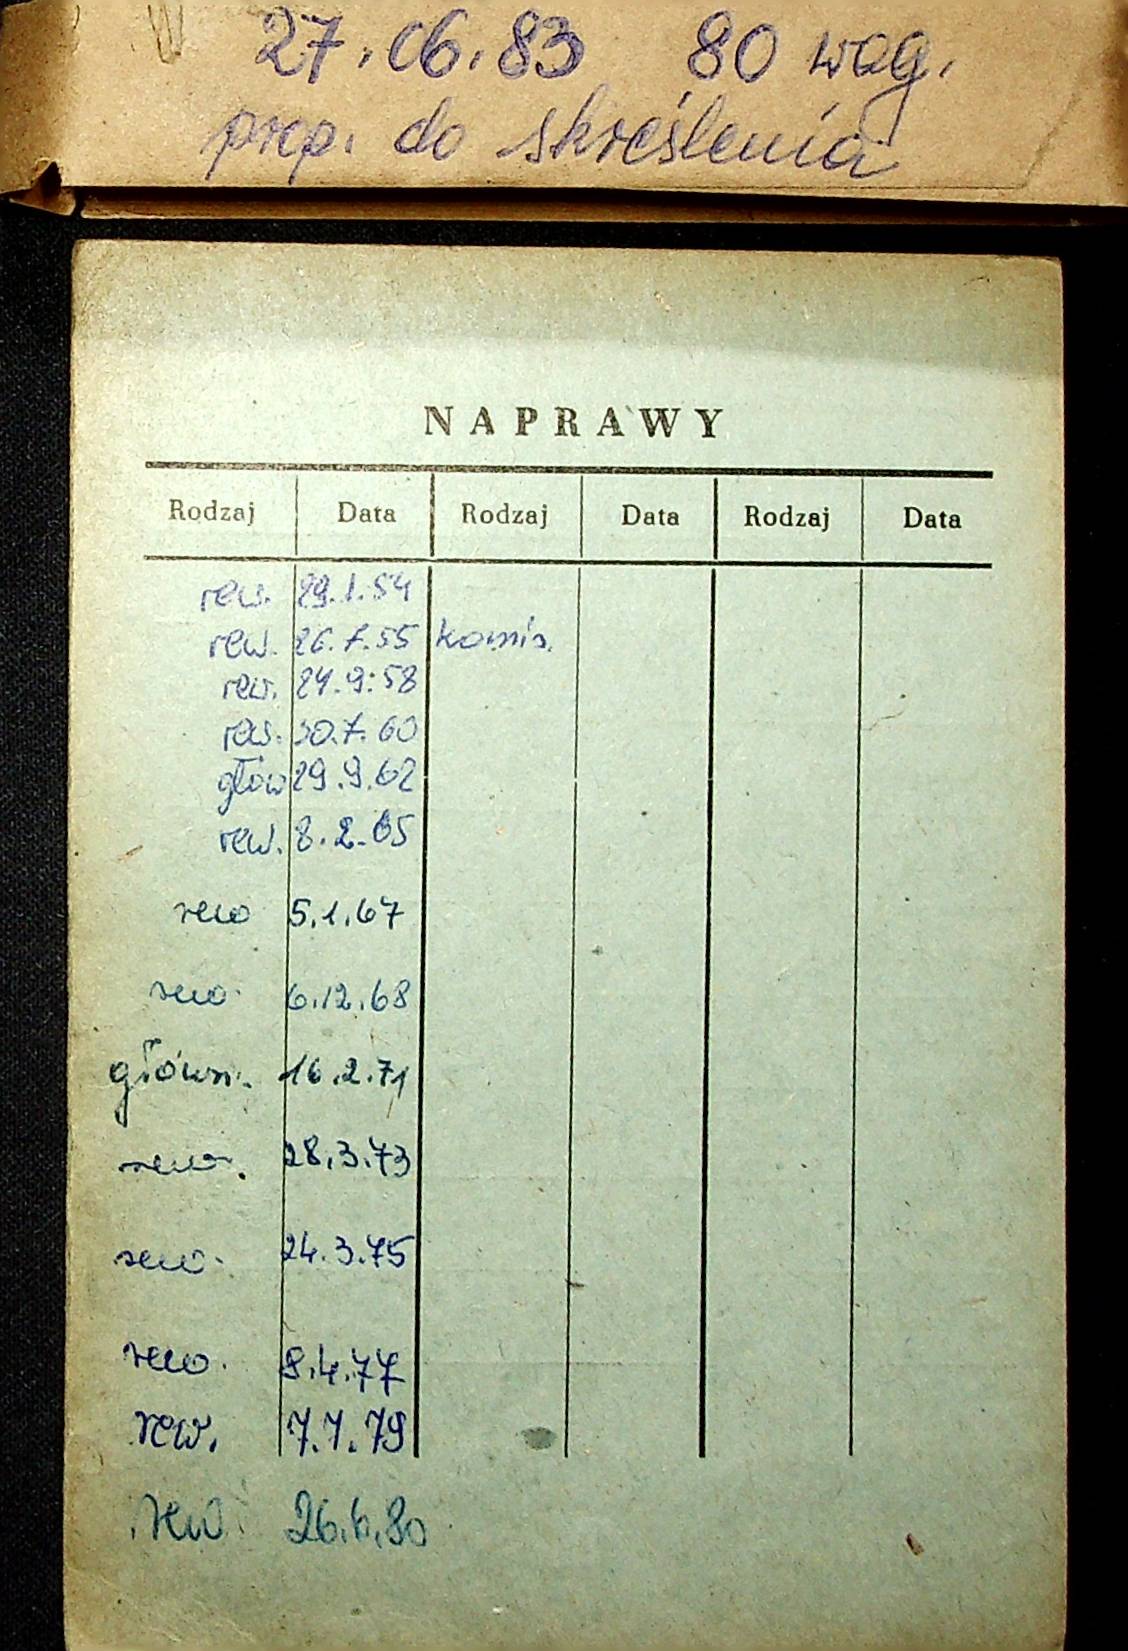 27.06.83 80 wag.
prop. do skreślenia
NAPRAWY
Rodzaj Data Rodzaj Data Rodzaj Data
rew. 29.1.54
rew. 26.7.55 komis.
rew. 24.9.58
rew. 30.7.60
głów 29.9.62
rew. 8.2.65
rew 5.1.67
rew. 6.12.68
główn. 16.2.71
rew. 28.3.73
rew. 24.3.75
rew. 8.4.77
rew. 7.7.79
rew. 26.6.80